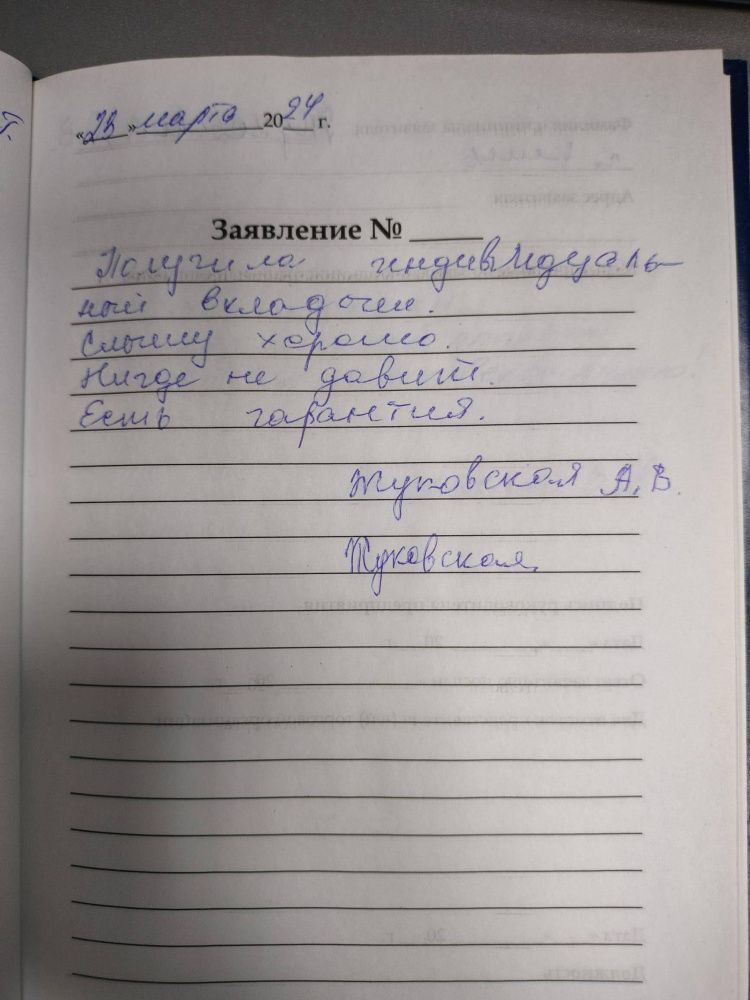 «23» марта 2024 г.
Заявление № ____
Получила индивидуаль-
ный вкладыш.
Слышу хорошо.
Нигде не давит.
Есть гарантия.
Жуковская А.В.
Жуковская